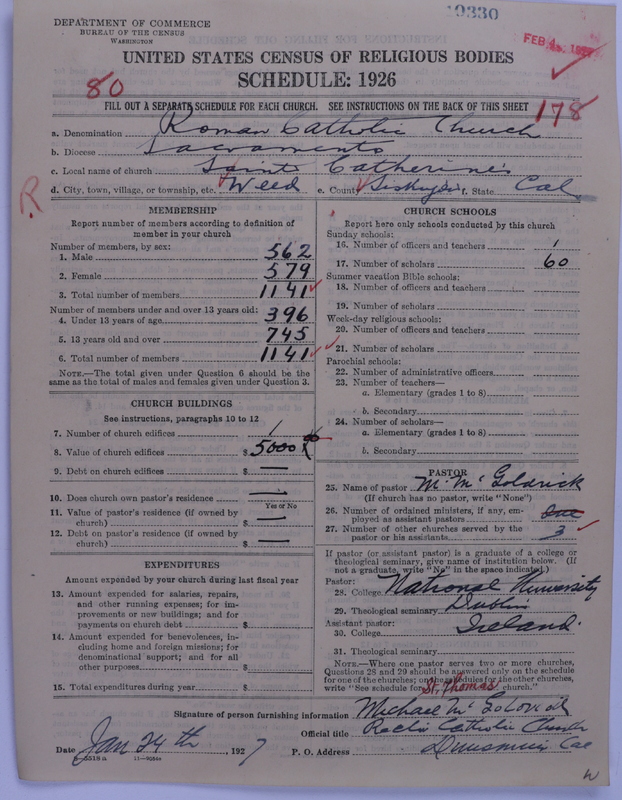 10330
DEPARTMENT OF COMMERCE
BUREAU OF THE CENSUS
WASHINGTON
FEB
UNITED STATES CENSUS OF RELIGIOUS BODIES
SCHEDULE: 1926
80
FILL OUT A SEPARATE SCHEDULE FOR EACH CHURCH. SEE INSTRUCTIONS ON THE BACK OF THIS SHEET
178
a. Denomination Roman Catholic Church
b. Diocese Sacramento
c. Local name of church Saint Catherine's
d. City, town, village, or township, etc. Weed e. County Siskiyou f. State Cal
R
MEMBERSHIP
Report number of members according to definition of
member in your church
Number of members, by sex:
1. Male 562
2. Female 579
3. Total number of members 1141
Number of members under and over 13 years old:
4. Under 13 years of age 396
5. 13 years old and over 745
6. Total number of members 1141
NOTE.—The total given under Question 6 should be the
same as the total of males and females given under Question 3.
CHURCH BUILDINGS
See instructions, paragraphs 10 to 12
7. Number of church edifices 1
8. Value of church edifices $ 5000
9. Debt on church edifices $ —
10. Does church own pastor's residence —
Yes or No
11. Value of pastor's residence (if owned by
church) $ —
12. Debt on pastor's residence (if owned by
church) $ —
EXPENDITURES
Amount expended by your church during last fiscal year
13. Amount expended for salaries, repairs,
and other running expenses; for im-
provements or new buildings; and for
payments on church debt $
14. Amount expended for benevolences, in-
cluding home and foreign missions; for
denominational support; and for all
other purposes $
15. Total expenditures during year $
CHURCH SCHOOLS
Report here only schools conducted by this church
Sunday schools:
16. Number of officers and teachers 1
17. Number of scholars 60
Summer vacation Bible schools:
18. Number of officers and teachers
19. Number of scholars
Week-day religious schools:
20. Number of officers and teachers
21. Number of scholars
Parochial schools:
22. Number of administrative officers
23. Number of teachers—
a. Elementary (grades 1 to 8)
b. Secondary
24. Number of scholars—
a. Elementary (grades 1 to 8)
b. Secondary
PASTOR
25. Name of pastor M. McGoldrick
(If church has no pastor, write "None")
26. Number of ordained ministers, if any, em-
ployed as assistant pastors
27. Number of other churches served by the
pastor or his assistants 3
If pastor (or assistant pastor) is a graduate of a college or
theological seminary, give name of institution below. (If
not a graduate, write "No" in the space indicated.)
Pastor:
28. College National University
29. Theological seminary Dublin
Assistant pastor:
30. College Ireland.
31. Theological seminary
NOTE.—Where one pastor serves two or more churches,
Questions 28 and 29 should be answered only on the schedule
for one of the churches; on the schedules for the other churches,
write "See schedule for St. Thomas church."
Signature of person furnishing information Michael McGoldrick
Official title Catholic Church
Date Jan 24th, 1927 P. O. Address Dunsmuir Cal
8—5518a 11—9084a
W